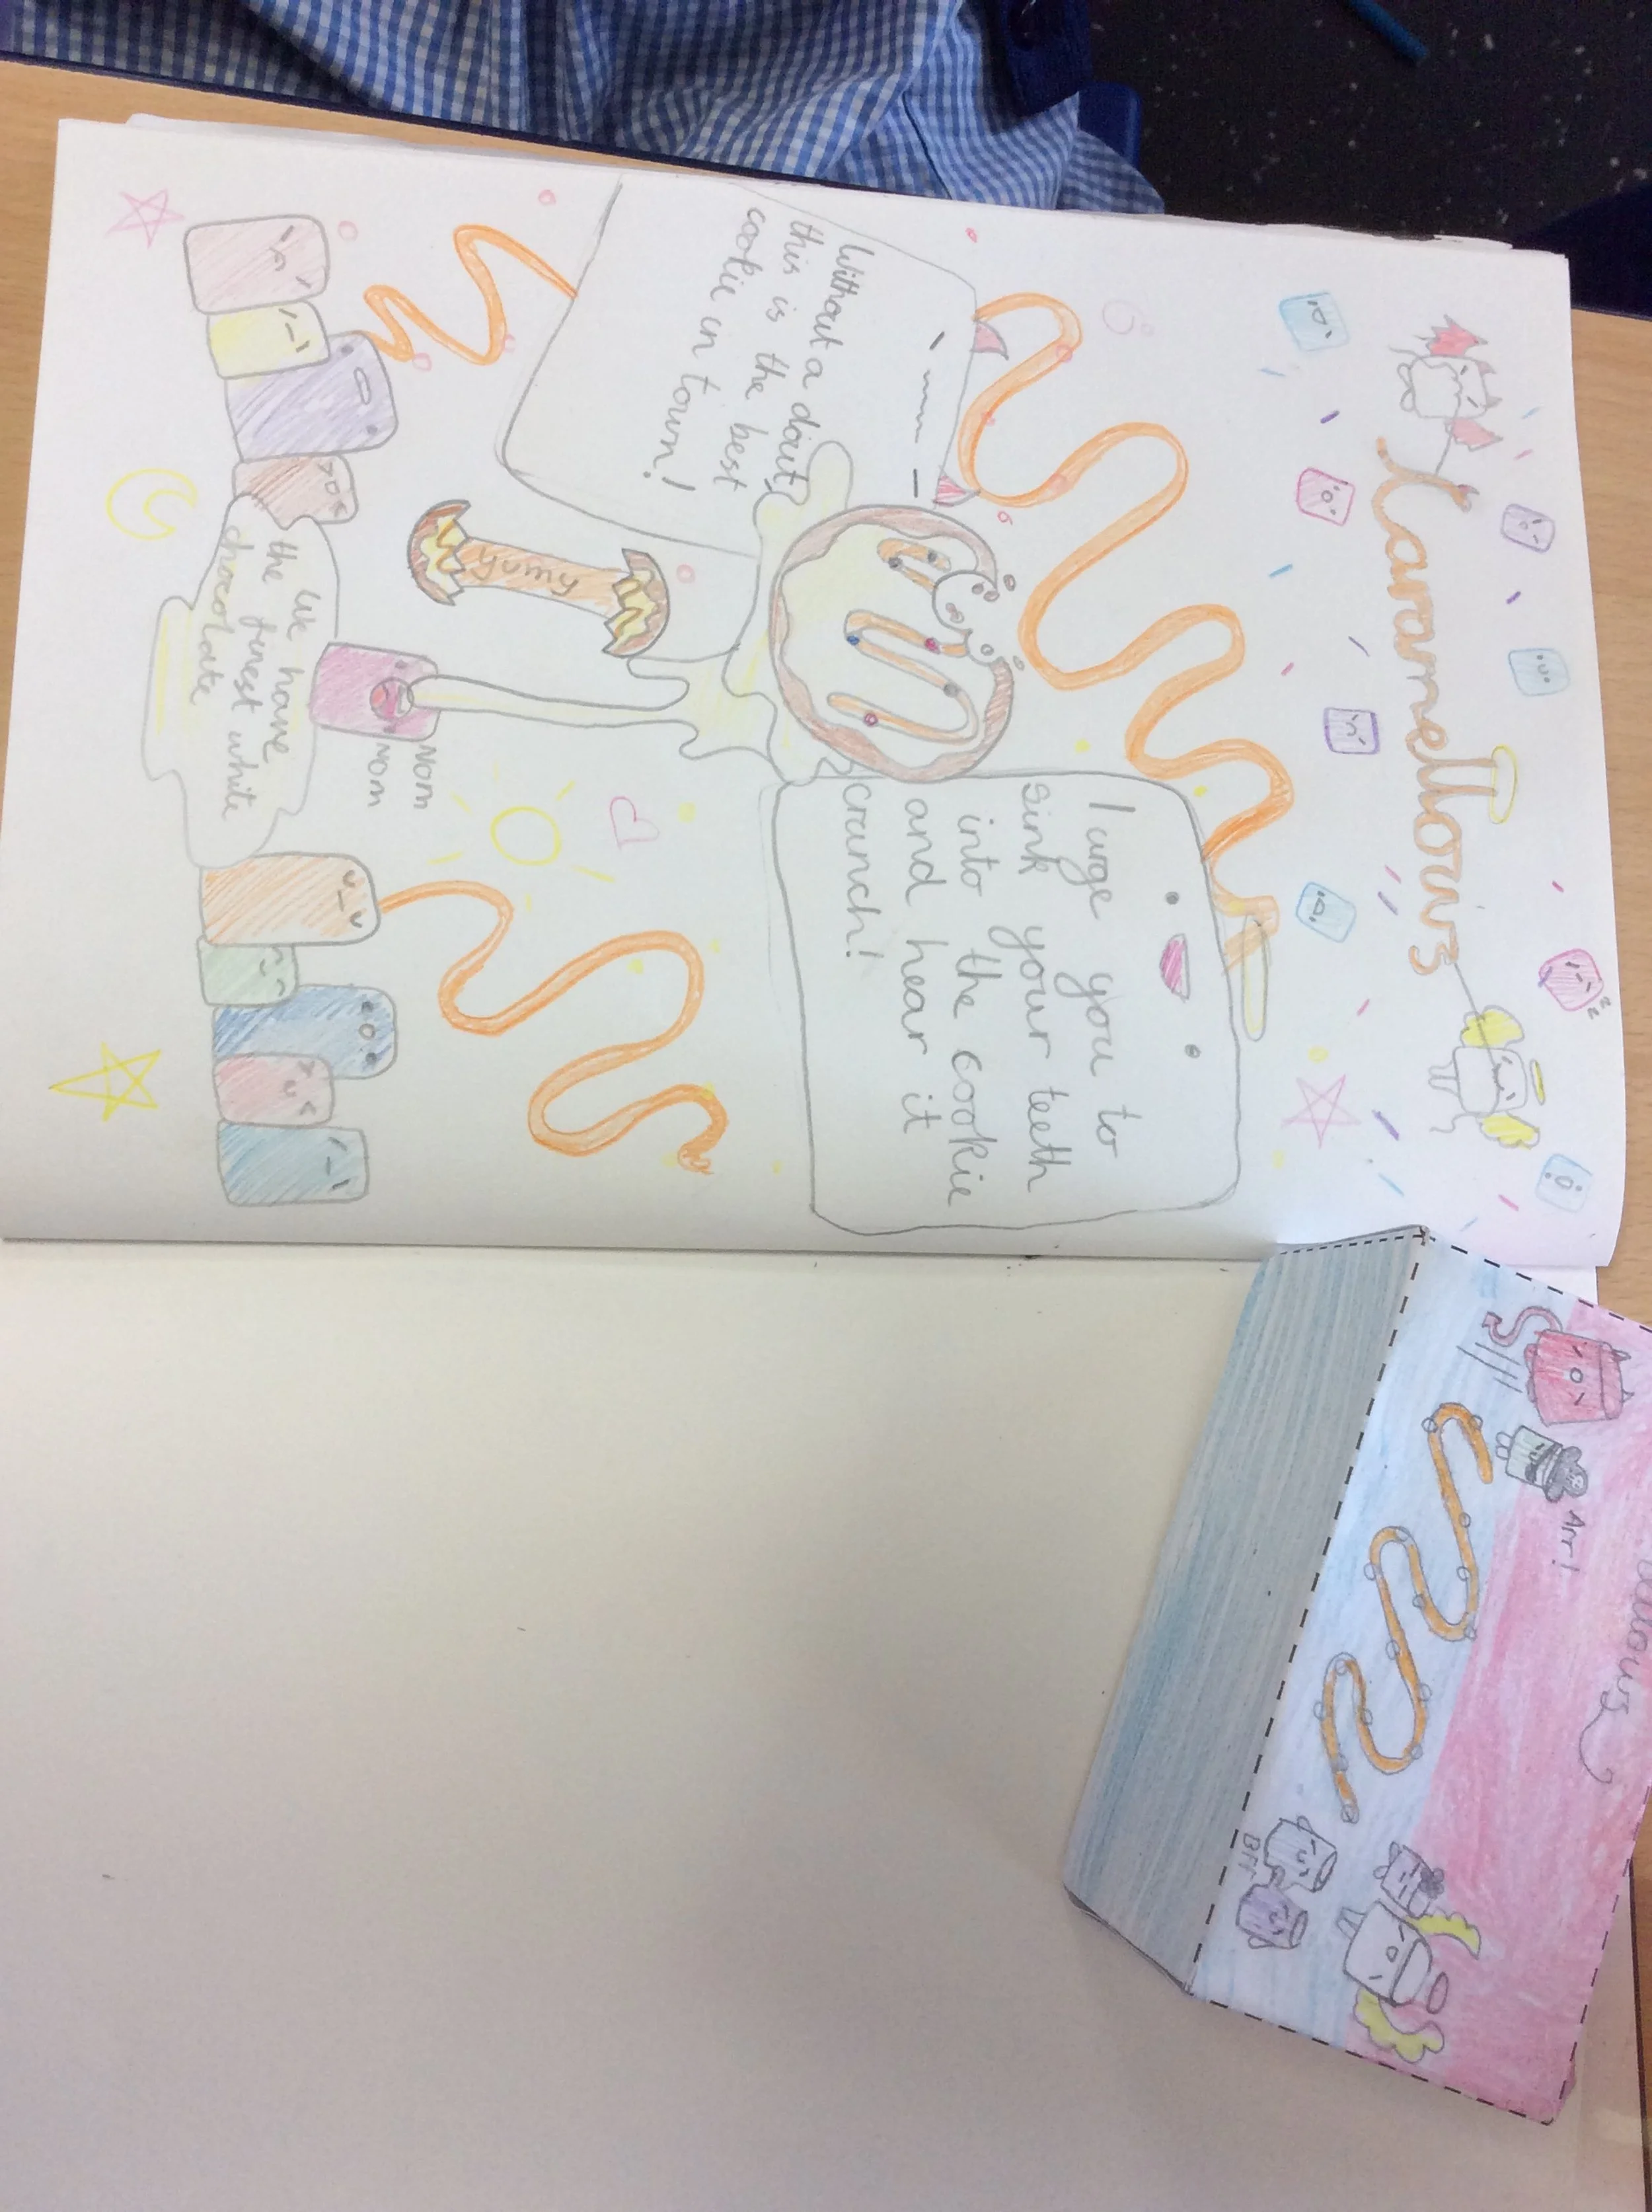 Caramellows
Without a dout,
this is the best
cookie in town!
I urge you to
sink your teeth
into the cookie
and hear it
crunch!
yumy
Nom
Nom
We have
the finest white
chocolate
ellows
Arr!
BFF